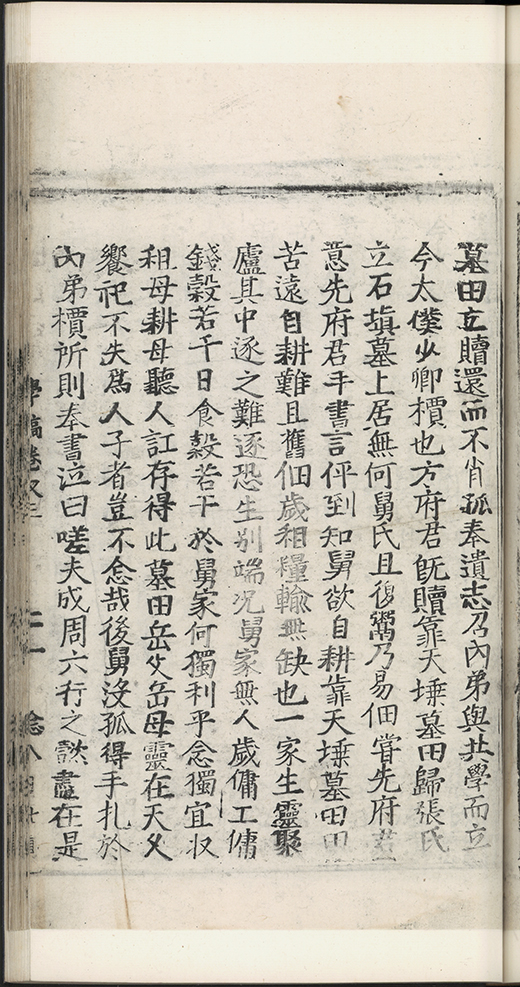 墓田立贖還而不肖孤奉遺志召內弟與共學而立
今太僕少卿檟也方府君旣贖靠天埀墓田歸張氏
立石塡墓上居無何舅氏且復鬻乃易佃嘗先府君
意先府君手書言伻到知舅欲自耕靠天埀墓田田
苦遠自耕難且舊佃歲租糧輸無缺也一家生靈聚
廬其中逐之難逐恐生別端况舅家無人歲傭工傭
錢穀若干日食穀若干於舅家何獨利乎念獨宜収
租母耕母聽人訌存得此墓田岳父岳母靈在天父
饗祀不失爲人子者豈不念哉後舅沒孤得手扎於
內弟檟所則奉書泣曰嗟夫成周六行之懿盡在是
學稿卷又三
二一